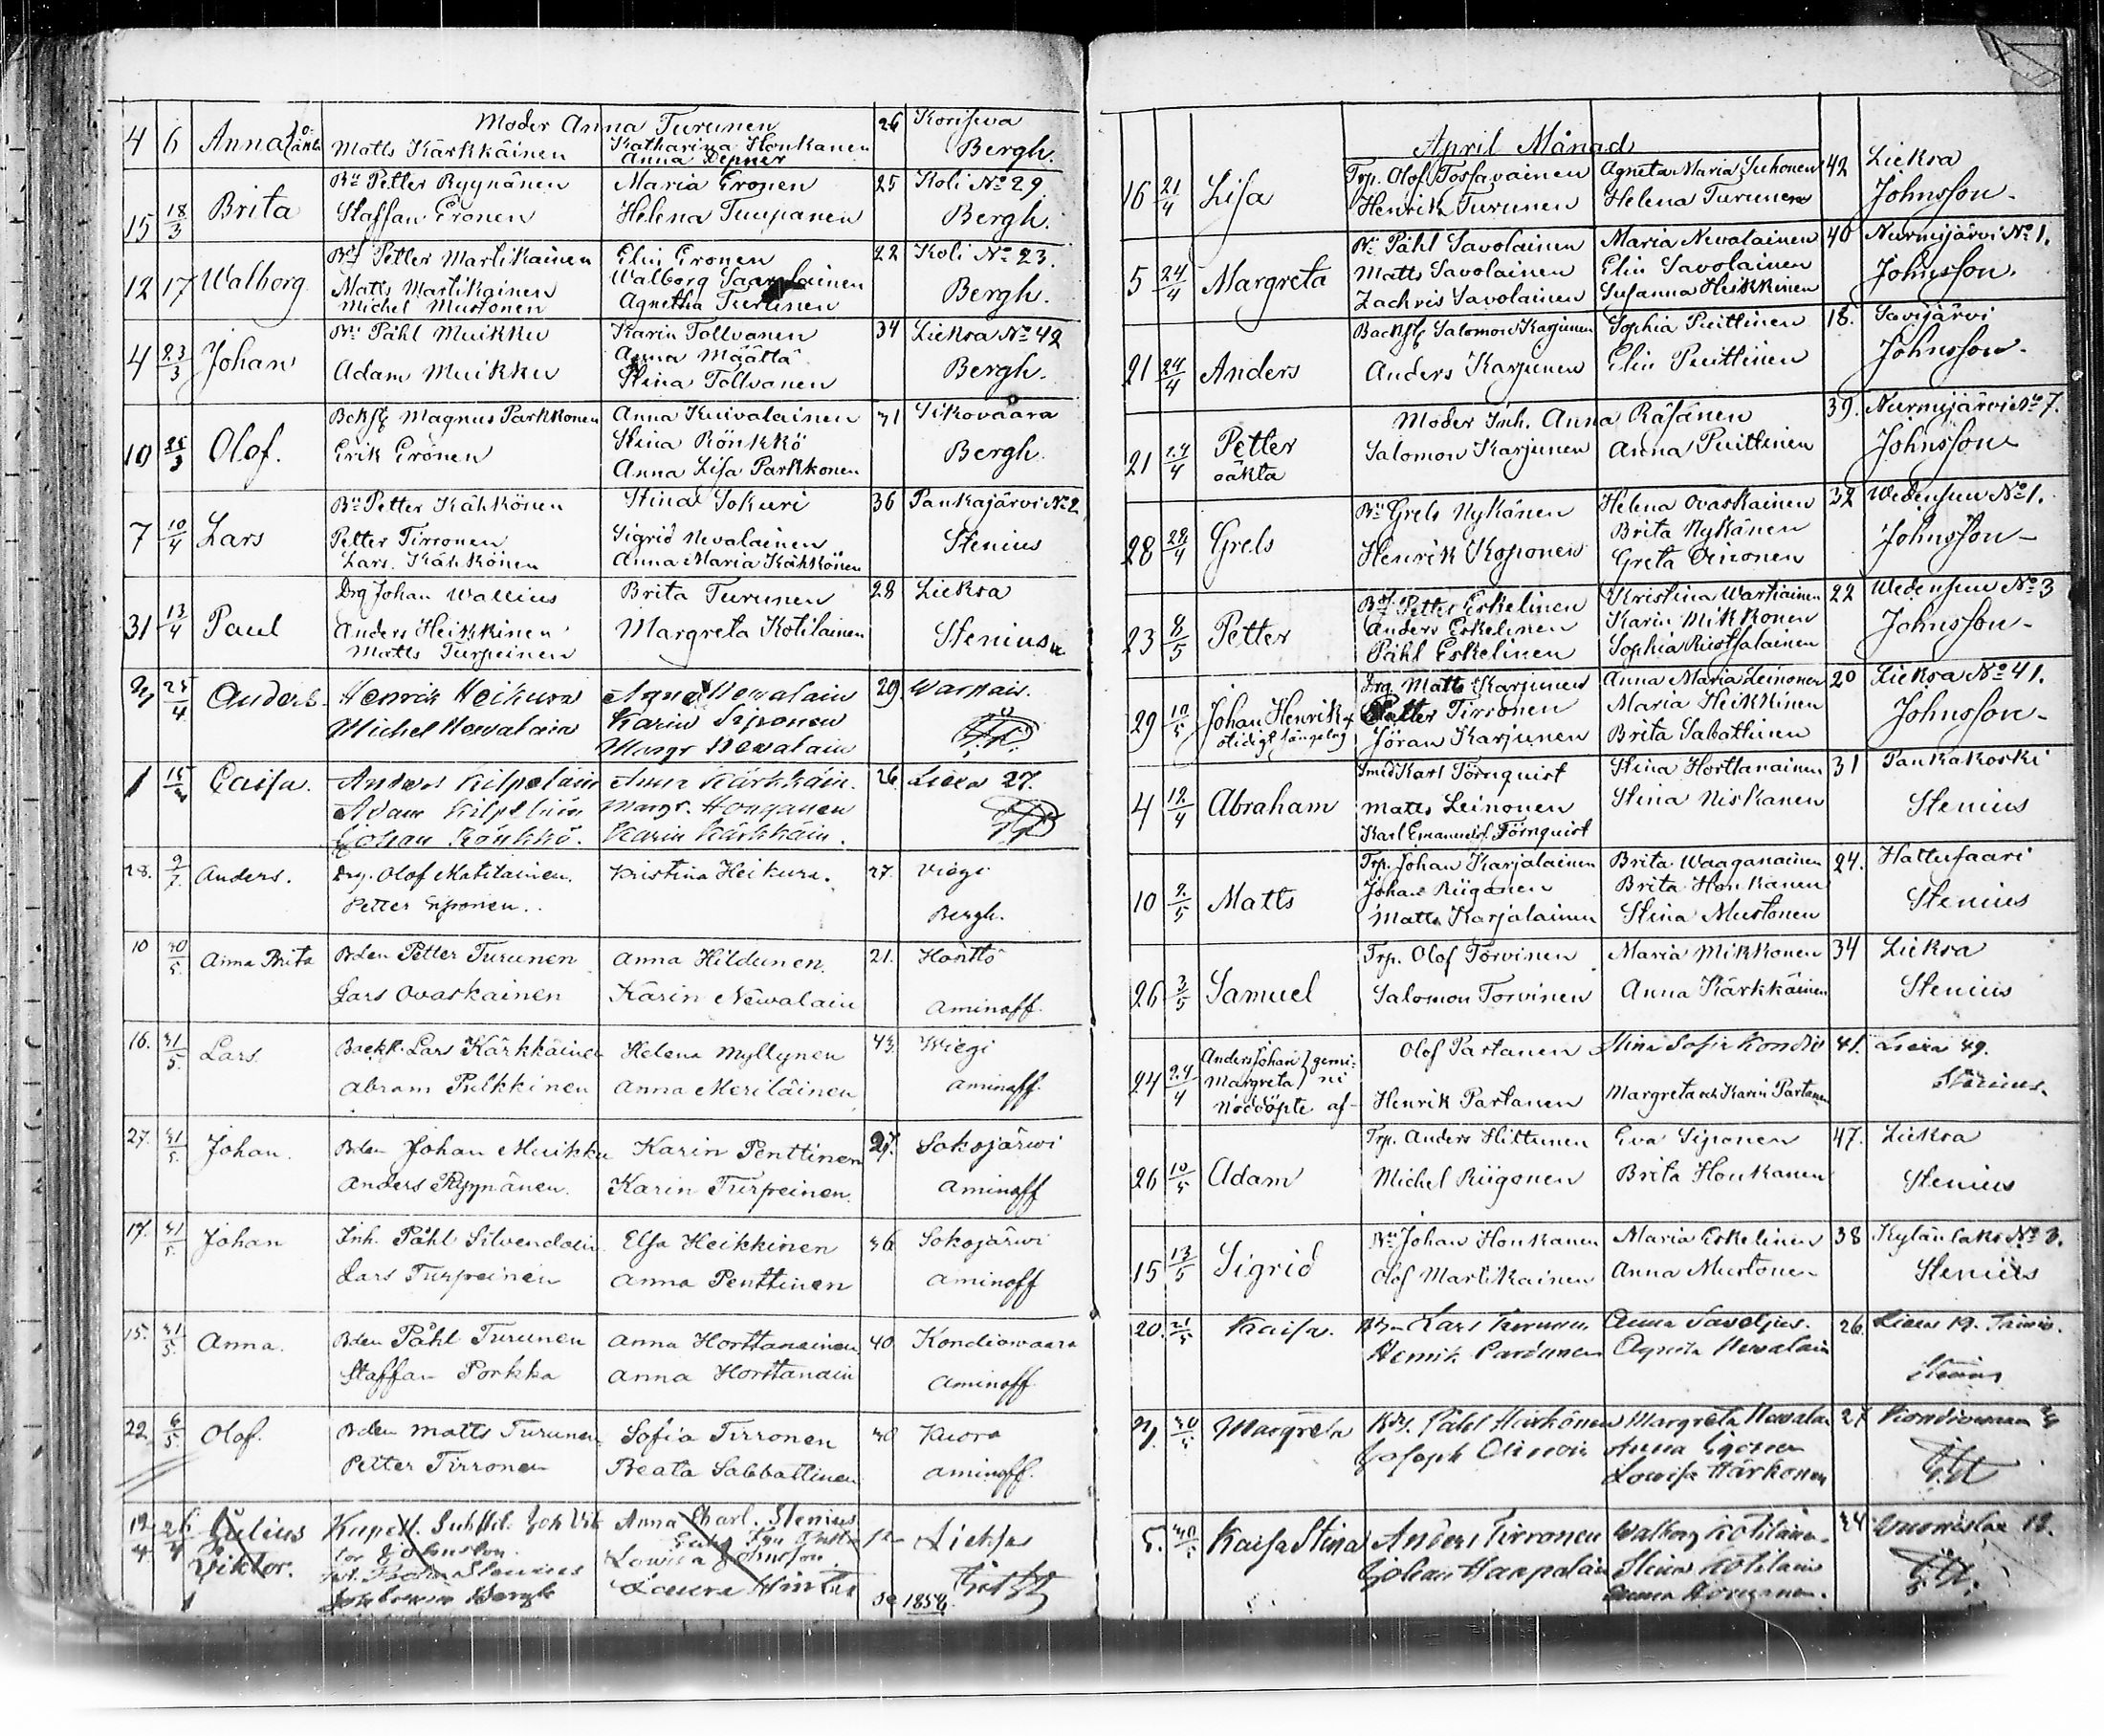 Moder Anna Turunen 26 Korisewa
4 6 Anna oäkta Matts Kärkkäinen Katharina Honkanen Bergh.
Anna Depner
Bn Petter Ryynänen Maria Eronen 25 Koli No 29
15 18/3 Brita Staffan Eronen Helena Tuupanen Bergh.
Petter Martikainen Elin Eronen 22 Koli No 23.
12 17 Walborg Matts Martikainen Walborg Bergh.
Michel Mustonen Agnetha Turunen
Bn Påhl Muikku Karin Tollvanen 34 Lieksa No 42
4 23/3 Johan Adam Muikku Anna Määttä Bergh.
Stina Tollvanen
Magnus Parkkonen Anna Kuivalainen 31 Sikovaara
10 25/3 Olof. Erik Eronen Stina Rönkkö Bergh.
Anna Lisa Parkkonen
Bn Petter Kähkönen Stina Sokuri 36 Pankajärvi No 2
7 10/4 Lars Petter Tirronen Sigrid Nevalainen Stenius
Lars. Kähkönen Anna Maria Kähkönen
Drg Johan Wallius Brita Turunen 28 Lieksa
31 13/4 Paul Anders Heikkinen Margreta Kotilainen Stenius
Matts Turpeinen
25/4 Anders Henrik Heikura Newalain 29. Warpais.
Michel Newalain Karin Siponen
Margr Newalain
1 Caisa. Anders Kilpeläin Anna Kärkkäin. 26. Lieksa 27.
Adam Kilpeläin Margr. Honganen
Johan Rönkkö. Karin Kärkkäin.
28. Anders. Drg. Olof Matilainen. Kristina Heikura. 27. Viegi
Petter Siponen. Bergh.
10 30/5 Anna Brita Bden Petter Turunen Anna Hildunen. 21. Honttö
Lars Ovaskainen Karin Newalain Aminoff.
16. 31/5 Lars. Lars Kärkkäinen Helena Myllynen 43. Wiegi
Abram Pulkkinen Anna Meriläinen Aminoff.
27. 31/5 Johan. Bden Johan Muikku Karin Penttinen 27. Sokojärwi
Anders Ryynänen. Karin Turpeinen. Aminoff
17. 31/5 Johan Inh. Påhl Silvendoin. Elsa Heikkinen 36 Sokojärwi
Lars Turpeinen Anna Penttinen Aminoff
15. 31/5 Anna. Bden Påhl Turunen Anna Horttanainen 40 Kondiowaara
Staffan Porkka Anna Horttanain Aminoff
22. 6/5 Olof. Bden Matts Turunen. Sofia Tirronen 30 Kuora
Petter Tirronen Beata Sabbattinen Aminoff.
19/4 Julius Kapell. Anna Charl. Stenius Lieksa
Viktor. Johnsson. Lowisa Johnsson
Stenius Laura
Bergh 1858.
April Månad
Trp. Olof Tossavainen Agneta Maria Juhonen 42 Lieksa
16 21/4 Lisa Henrik Turunen Helena Turunen Johnsson.
Bn Påhl Savolainen Maria Nevalainen 40 Nurmijärvi No 1.
5 24/4 Margreta Matts Savolainen Elin Savolainen Johnsson.
Zachris Savolainen Susanna Heikkinen
Salomon Karjunen Sophia Puittinen 18. Savijärvi
21 24/4 Anders Anders Karjunen Elin Puittinen Johnsson.
Moder Inh. Anna Räsänen 39. Nurmijärvi No 7.
21 24/4 Petter Salomon Karjunen Anna Puittinen Johnsson
oäkta
Bn Grels Nykänen Helena Ovaskainen 32 Wedensuu No 1.
28 29/4 Grels Henrik Koponen Brita Nykänen Johnsson
Greta Oinonen
Petter Eskelinen Kristina Wartiainen 22 Wedensuu No 3
23 8/5 Petter Anders Eskelinen Karin Mikkonen Johnsson
Påhl Eskelinen Sophia Ruotsalainen
Drg Matts Karjunen Anna Maria Leinonen 20 Lieksa No 41.
29 10/5 Johan Henrik Petter Tirronen Maria Heikkinen Johnsson
Jöran Karjunen Brita Sabathinen
Smed Karl Törnquist Stina Horttanainen 31 Pankakoski
4 12/4 Abraham Matts Leinonen Stina Niskanen Stenius
Karl Emanuel Törnquist
Trp. Johan Karjalainen Brita Waaganainen 24. Hattusaari
10 2/5 Matts Johan Riigonen Brita Honkanen Stenius
Matts Karjalainen Stina Mustonen
Trp. Olof Torvinen Maria Mikkonen 34 Lieksa
26 3/5 Samuel Salomon Torvinen Anna Kärkkäinen Stenius
Anders Johan gemi- Olof Partanen Stina Sofia 41. Lieksa 49.
24 24/4 Margreta ni Stenius.
Nöddöpte af Henrik Partanen Margreta och Karin Partanen
Trp. Anders Hiltunen Eva Siponen 47. Lieksa
26 10/5 Adam Michel Riigonen Brita Honkanen Stenius
Bn Johan Honkanen Maria Eskelinen 38 Kylänlaks No 3.
15 13/5 Sigrid Olof Martikainen Anna Mustonen Stenius
20. 21/5 Kaisa. Lars Turunen Anna Saveljus. 26. Lieksa 19.
Henrik Agneta Newalain Stenius
30/5 Margreta Påhl Härkönen Margreta Newalai 27 Kondiowaara
Joseph Anna
Lowisa Härkonen
5. 30/5 Kaisa Stina Anders Tirronen Walborg Kotilain. 24 Vuonislax 12.
Johan Haapalain Stina Kotilain
Anna Honganen.